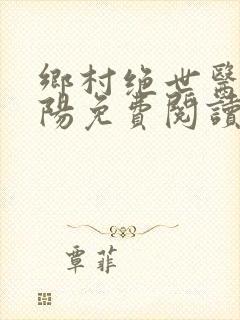 鄉村绝世醫
陽免費閱讀
覃菲